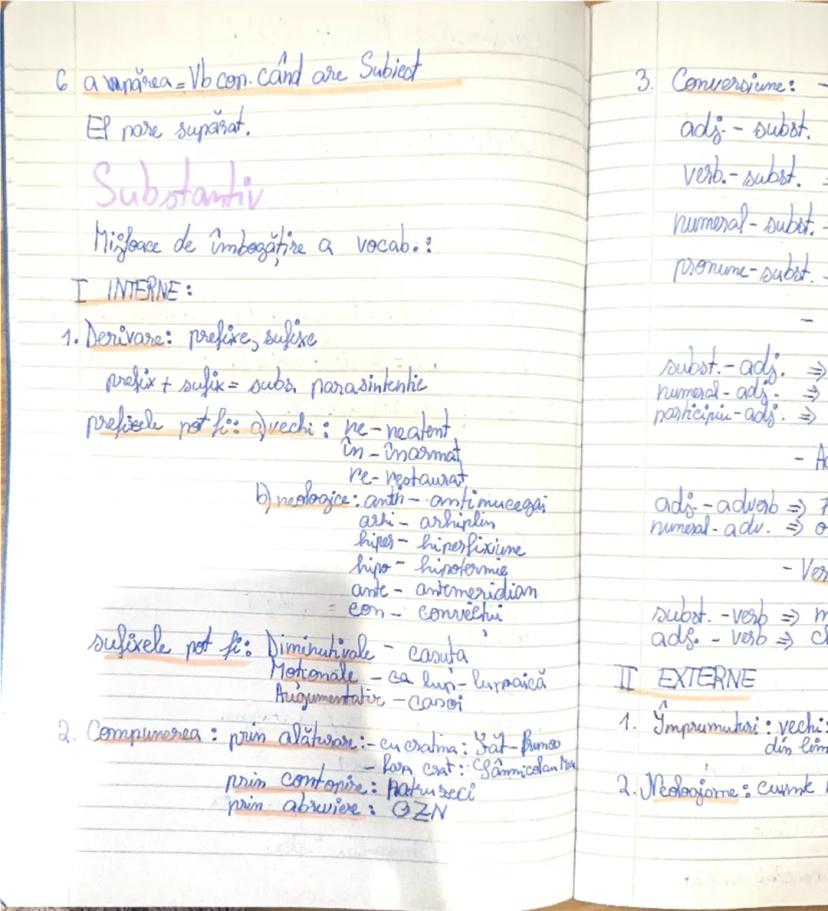 6 a părea = Vb cop. când are Subiect
El pare supărat.
Substantiv
Mijloace de îmbogățire a vocab.:
I INTERNE:
1. Derivare: prefixe, sufixe
prefix + sufix = subs. parasintentic
prefixele pot fi: a) vechi: ne - neatent
în - înarmat
re - restaurat
b) neologice: anti - antimucegai
arhi - arhiplin
hiper - hiperfixiune
hipo - hipotermie
ante - antemeridian
con - conviețui
sufixele pot fi: Diminutivale - casuța
Moționale - ca lup - lupoaică
Augumentativ - casoi
2. Compunerea: prin alăturare: - cu cratima: Făt-Frumos
- fara crat: Sânnicolau
prin contopire: patruzeci
prin abreviere: OZN
3. Conversiune: -
adj. - subst.
verb. - subst.
numeral - subst. -
pronume - subst. -
-
subst. - adj. ⇒
numeral - adj. ⇒
participiu - adj. ⇒
- A
adj. - adverb ⇒
numeral - adv. ⇒ o
- Ver
subst. - verb ⇒ m
adj. - verb ⇒
II EXTERNE
1. Împrumuturi: vechi:
din lim
2. Neologisme: